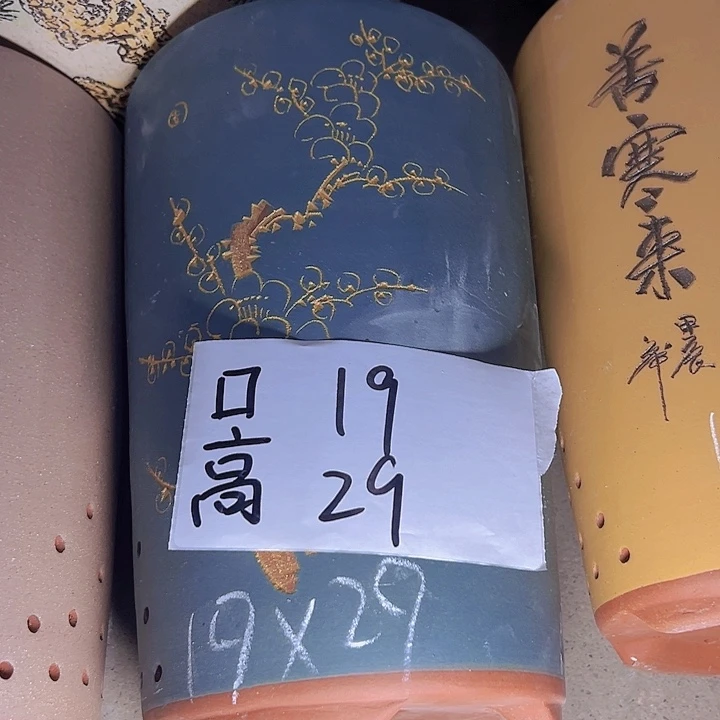 口 19
高 29
19X29
苦寒来
甲辰
年